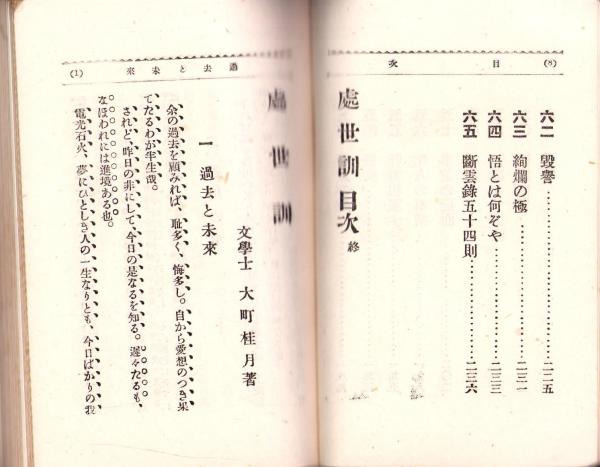 (8) 目次
六二 毀譽…………二二五
六三 絢爛の極…………二三一
六四 悟とは何ぞや…………二三三
六五 斷雲錄五十四則…………二三六
處世訓目次 終
過去と未來 (1)
處世訓
文學士 大町桂月著
一 過去と未來
余の過去を顧みれば、耻多く、悔多し。自から愛想のつき果
てたるわが半生哉。
されど、昨日の非にして、今日の是なるを知る。遲々たるも、
なほわれには進境ある也。
電光石火、夢にひとしき人の一生なりとも、今日ばかりの我